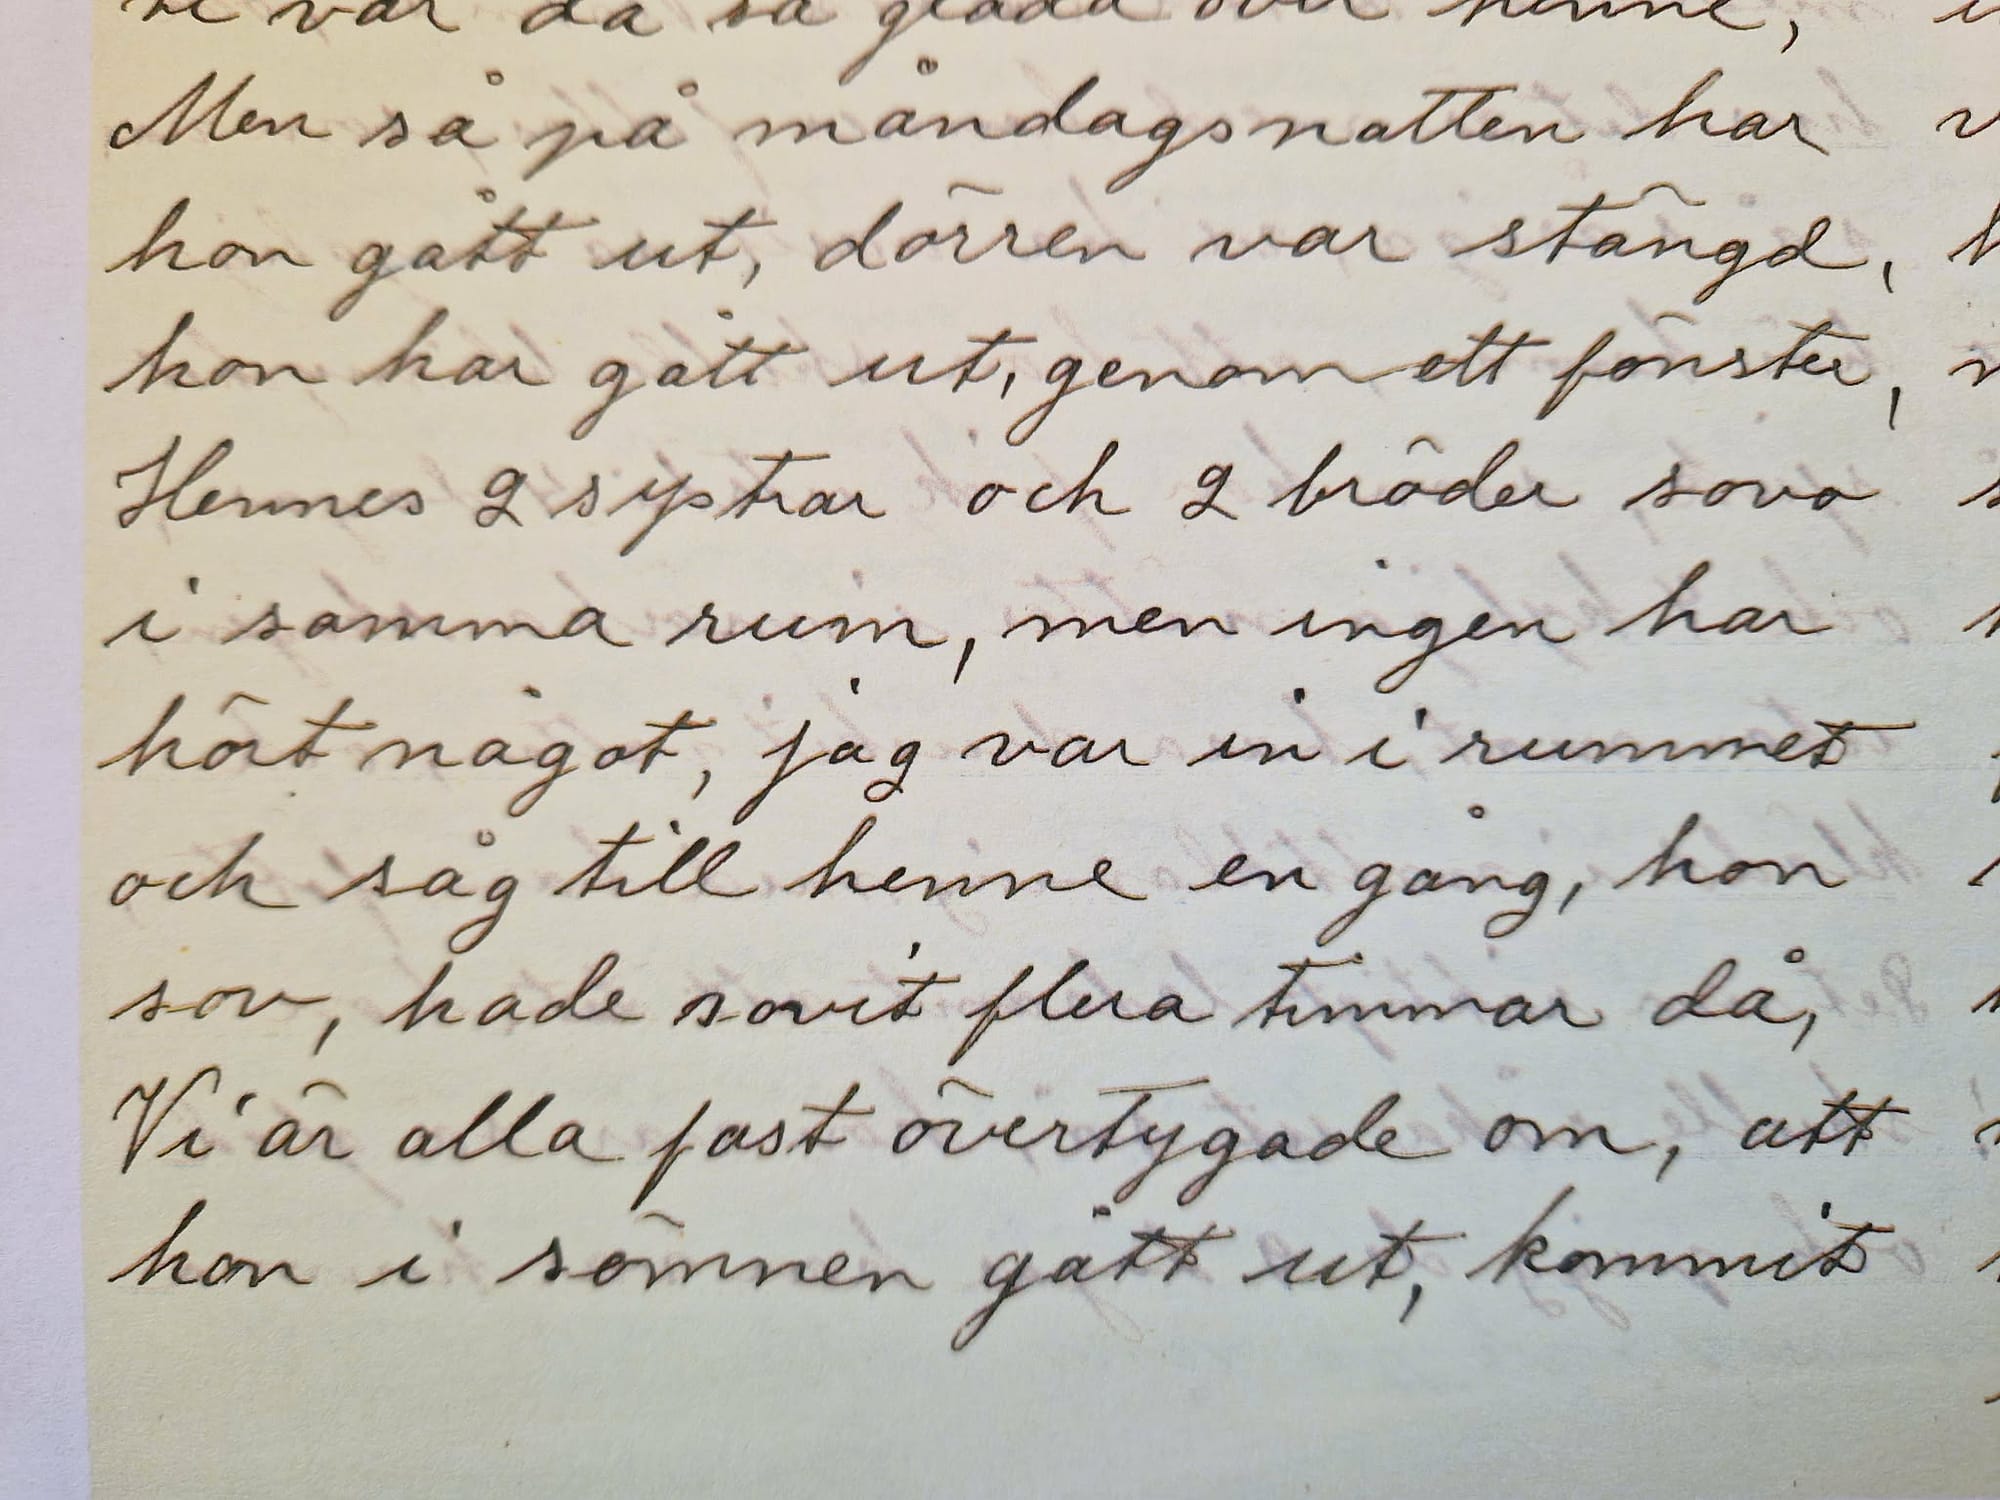 var då så glada över henne,
Men så på måndagsnatten har
hon gått ut, dörren var stängd,
hon har gått ut, genom ett fönster,
Hennes 2 systrar och 2 bröder sovo
i samma rum, men ingen har
hört något, jag var in i rummet
och såg till henne en gång, hon
sov, hade sovit flera timmar då,
Vi är alla fast övertygade om, att
hon i sömnen gått ut, kommit